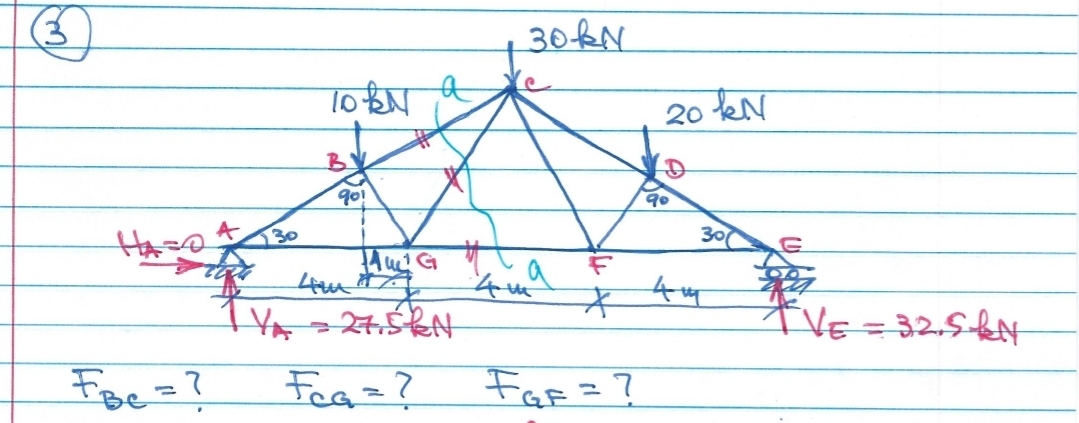 3
30 kN
a
C
10 kN
20 kN
B
D
90
90
A
30
30
E
H_A = 0
1m
G
F
4m
4m
a
4m
V_A = 27.5 kN
V_E = 32.5 kN
F_BC = ? F_CG = ? F_GF = ?